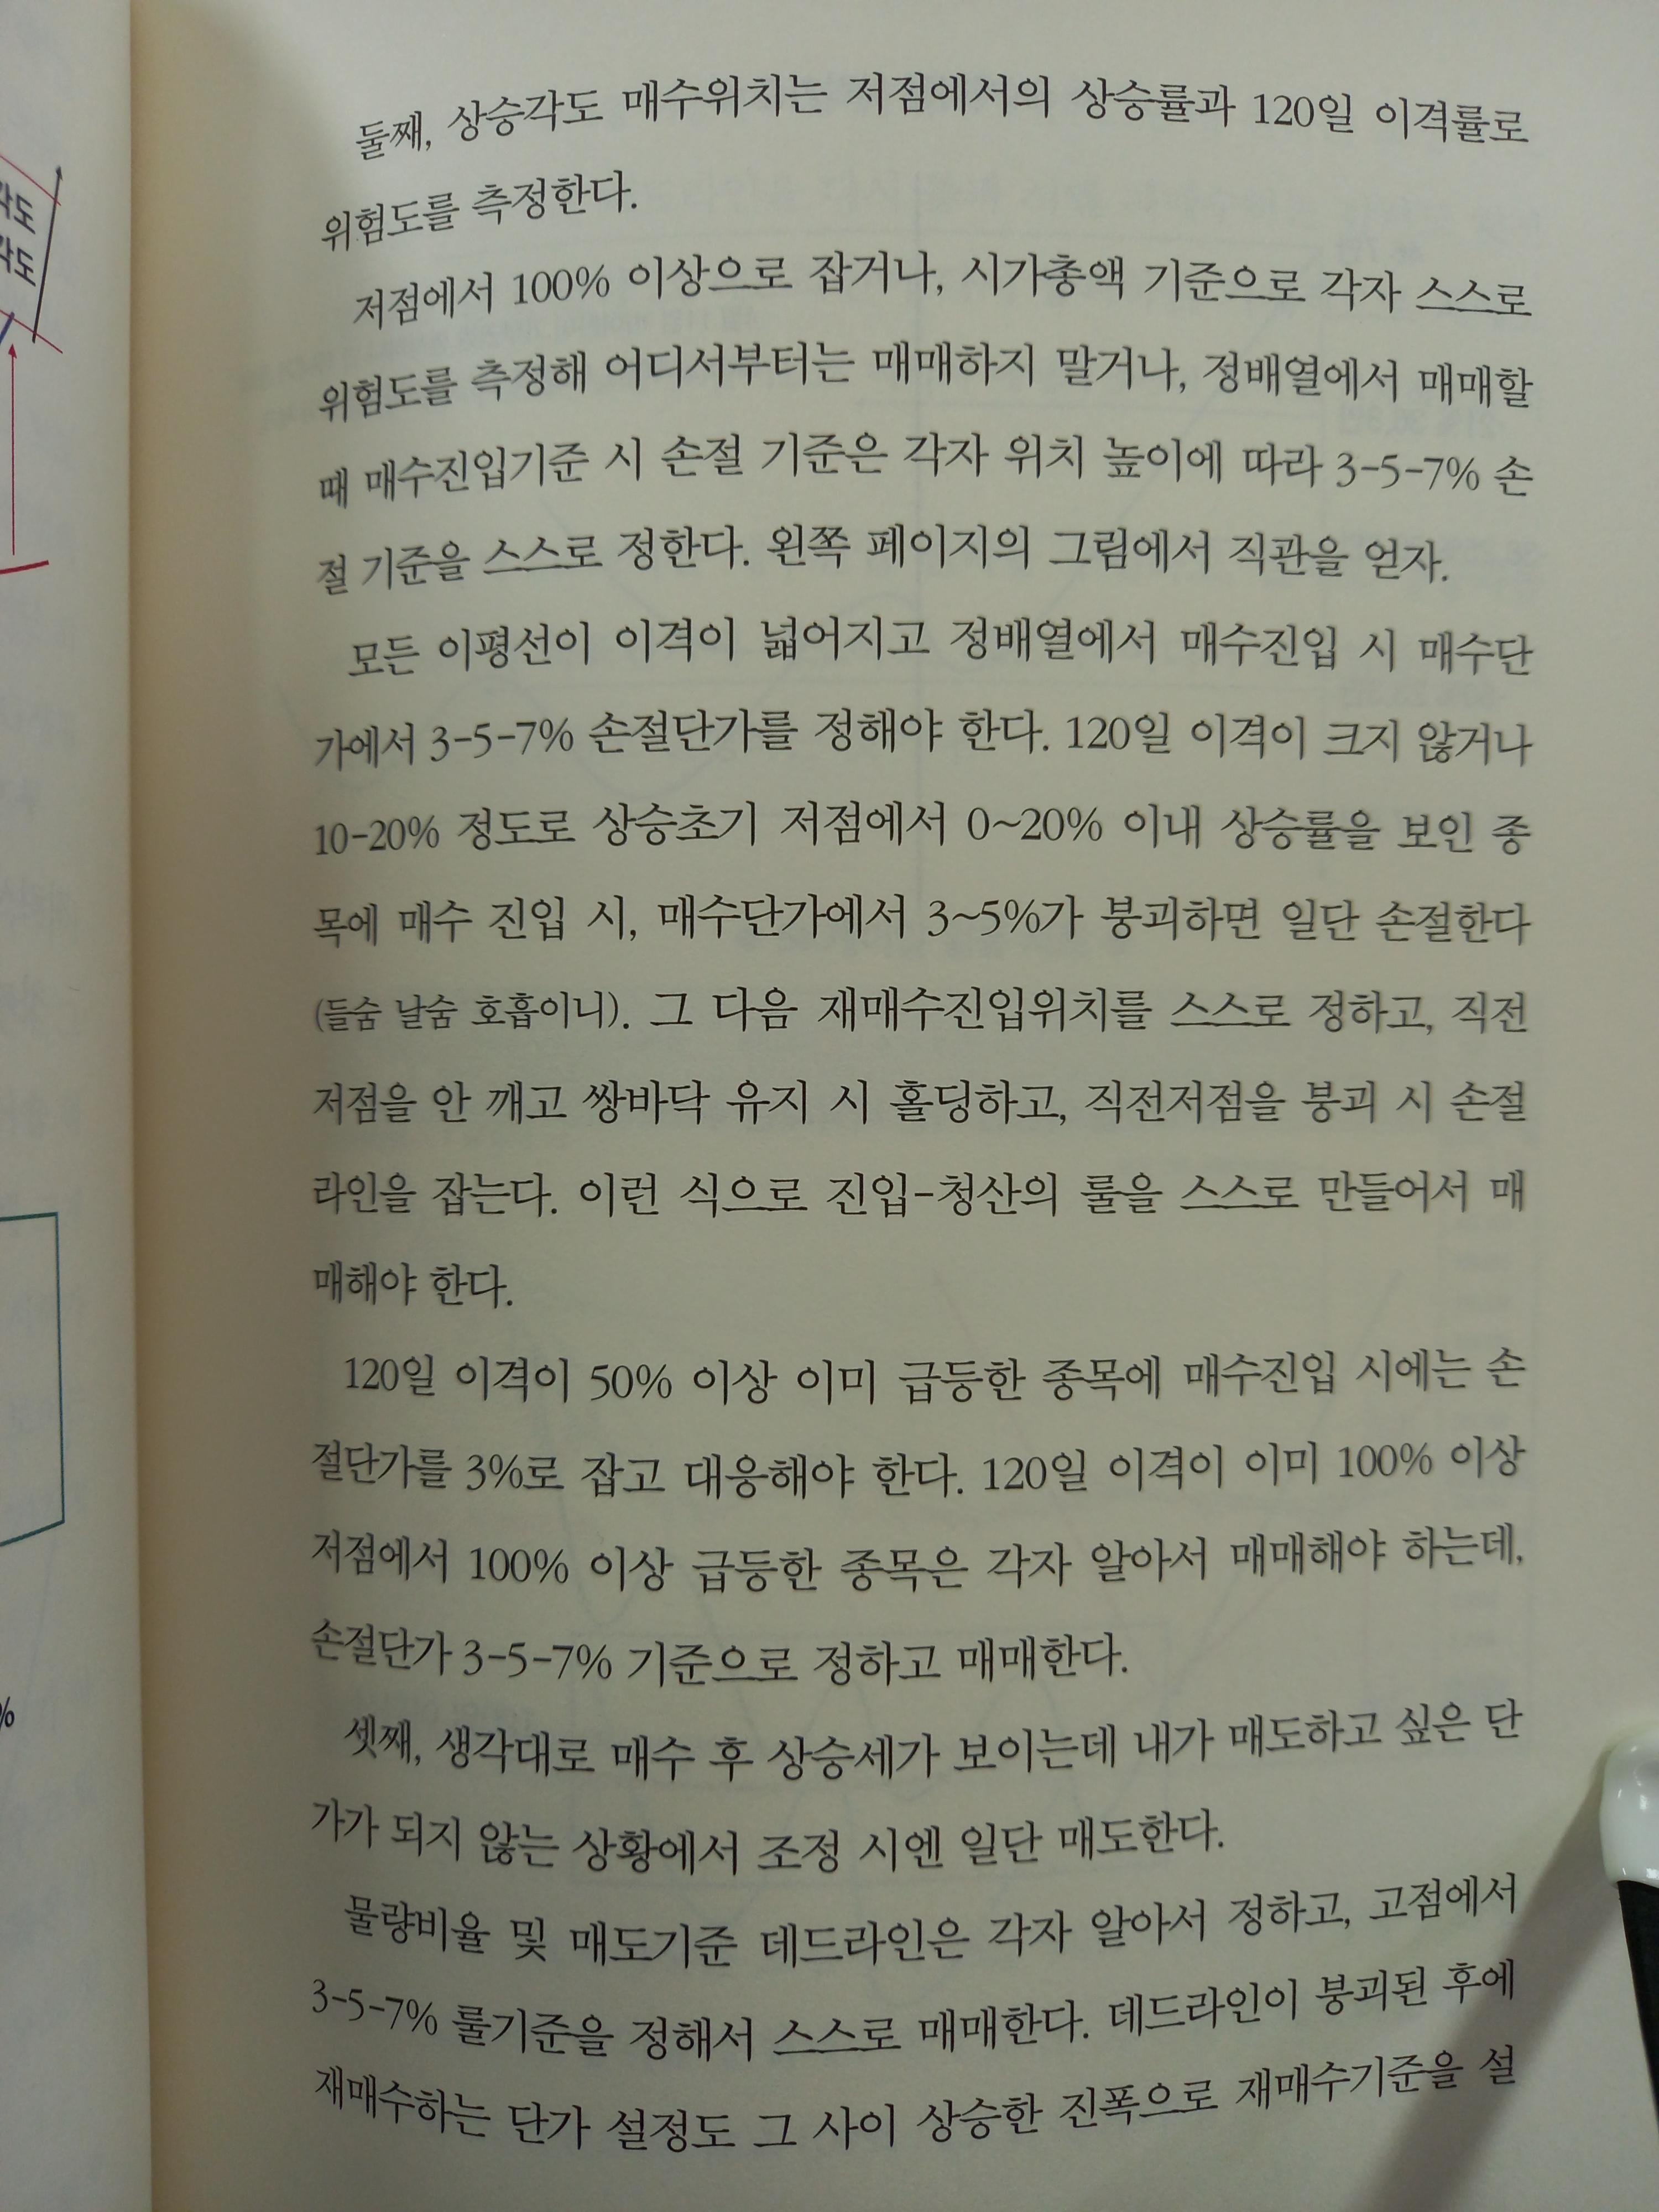 각도
각도
%
둘째, 상승각도 매수위치는 저점에서의 상승률과 120일 이격률로
위험도를 측정한다.
저점에서 100% 이상으로 잡거나, 시가총액 기준으로 각자 스스로
위험도를 측정해 어디서부터는 매매하지 말거나, 정배열에서 매매할
때 매수진입기준 시 손절 기준은 각자 위치 높이에 따라 3-5-7% 손
절 기준을 스스로 정한다. 왼쪽 페이지의 그림에서 직관을 얻자.
모든 이평선이 이격이 넓어지고 정배열에서 매수진입 시 매수단
가에서 3-5-7% 손절단가를 정해야 한다. 120일 이격이 크지 않거나
10-20% 정도로 상승초기 저점에서 0~20% 이내 상승률을 보인 종
목에 매수 진입 시, 매수단가에서 3~5%가 붕괴하면 일단 손절한다
(들숨 날숨 호흡이니). 그 다음 재매수진입위치를 스스로 정하고, 직전
저점을 안 깨고 쌍바닥 유지 시 홀딩하고, 직전저점을 붕괴 시 손절
라인을 잡는다. 이런 식으로 진입-청산의 룰을 스스로 만들어서 매
매해야 한다.
120일 이격이 50% 이상 이미 급등한 종목에 매수진입 시에는 손
절단가를 3%로 잡고 대응해야 한다. 120일 이격이 이미 100% 이상
저점에서 100% 이상 급등한 종목은 각자 알아서 매매해야 하는데,
손절단가 3-5-7% 기준으로 정하고 매매한다.
셋째, 생각대로 매수 후 상승세가 보이는데 내가 매도하고 싶은 단
가가 되지 않는 상황에서 조정 시엔 일단 매도한다.
물량비율 및 매도기준 데드라인은 각자 알아서 정하고, 고점에서
3-5-7% 룰기준을 정해서 스스로 매매한다. 데드라인이 붕괴된 후에
재매수하는 단가 설정도 그 사이 상승한 진폭으로 재매수기준을 설